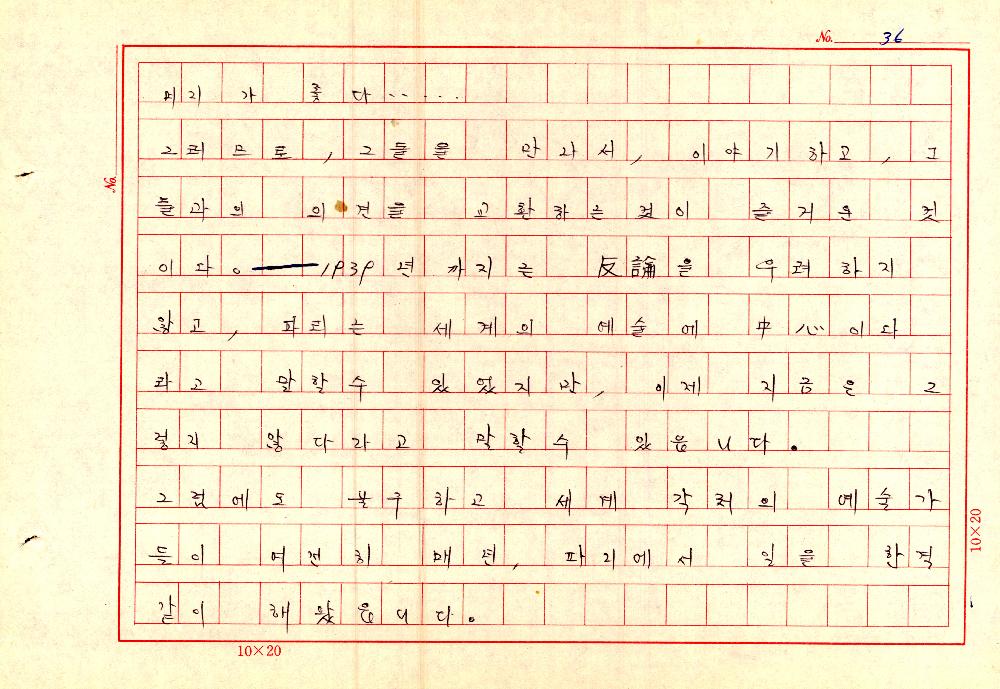 No. 36
머리가 좋다.....
그러므로, 그들을 만나서, 이야기하고, 그
들과의 의견을 교환하는 것이 즐거운 것
이다。——1939년 까지는 反論을 우려하지
않고, 파리는 세계의 예술에 中心이다
라고 말할수 있었지만, 이제 지금은 그
렇지 않다라고 말할수 있읍니다.
그럼에도 불구하고 세계 각처의 예술가
들이 여전히 매년, 파리에서 일을 한결
같이 해 왔읍니다.
No.
10×20
10×20